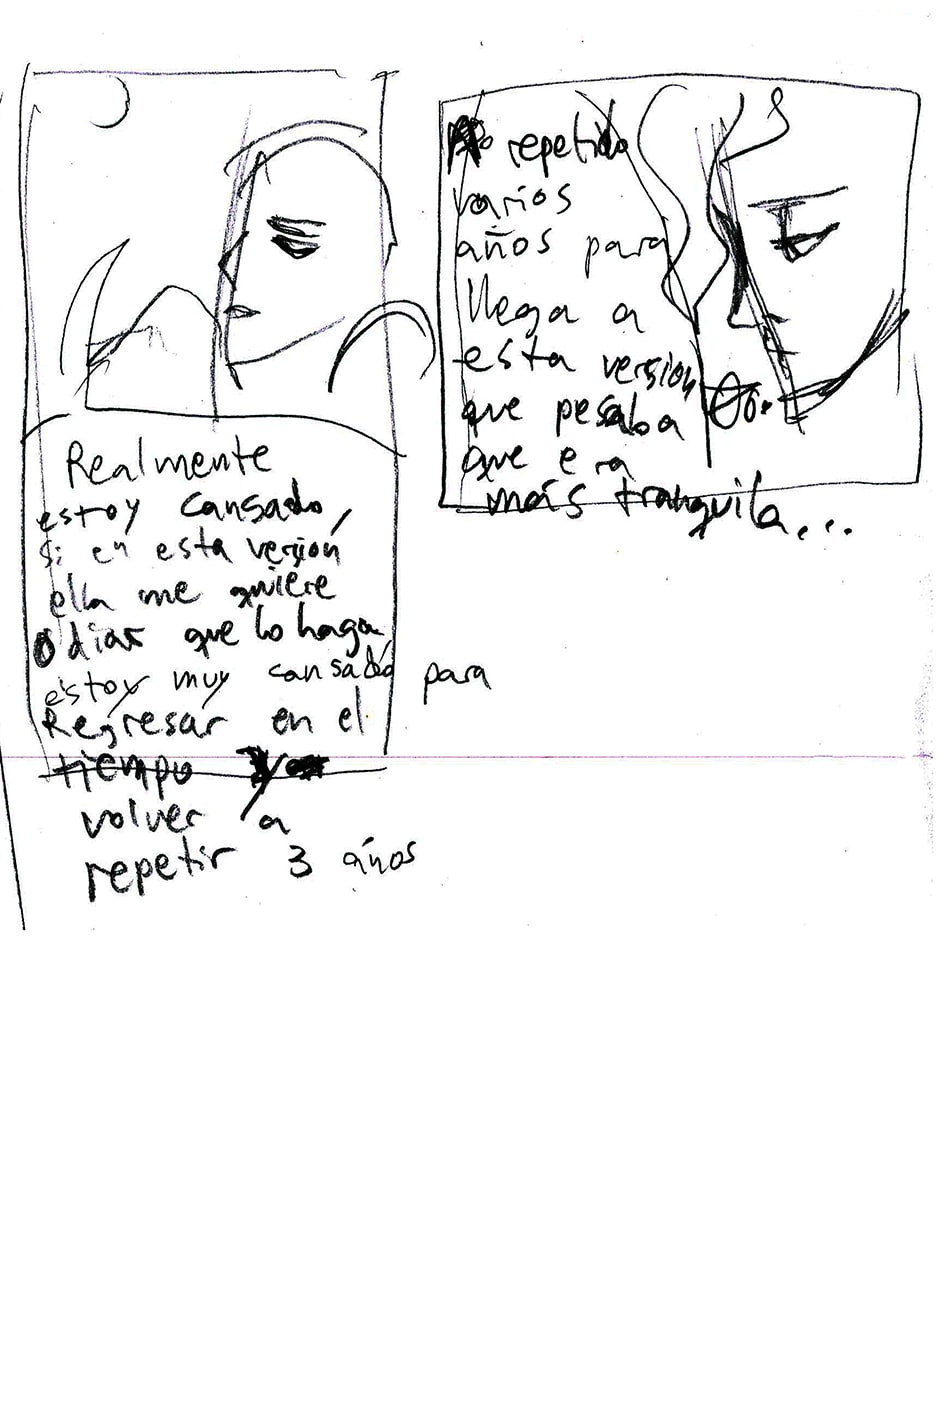 Realmente
estoy cansado,
si en esta versión
ella me quiere
odiar que lo haga
estoy muy cansado para
Regresar en el
tiempo y
volver a
repetir 3 años
repetido
varios
años para
llega a
esta version
que pesaba
que era
más tranquila...